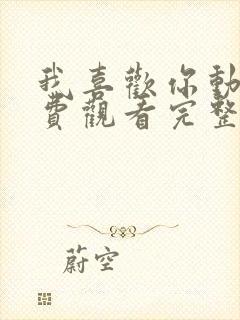 我喜歡你動
費觀看完整
蔚空